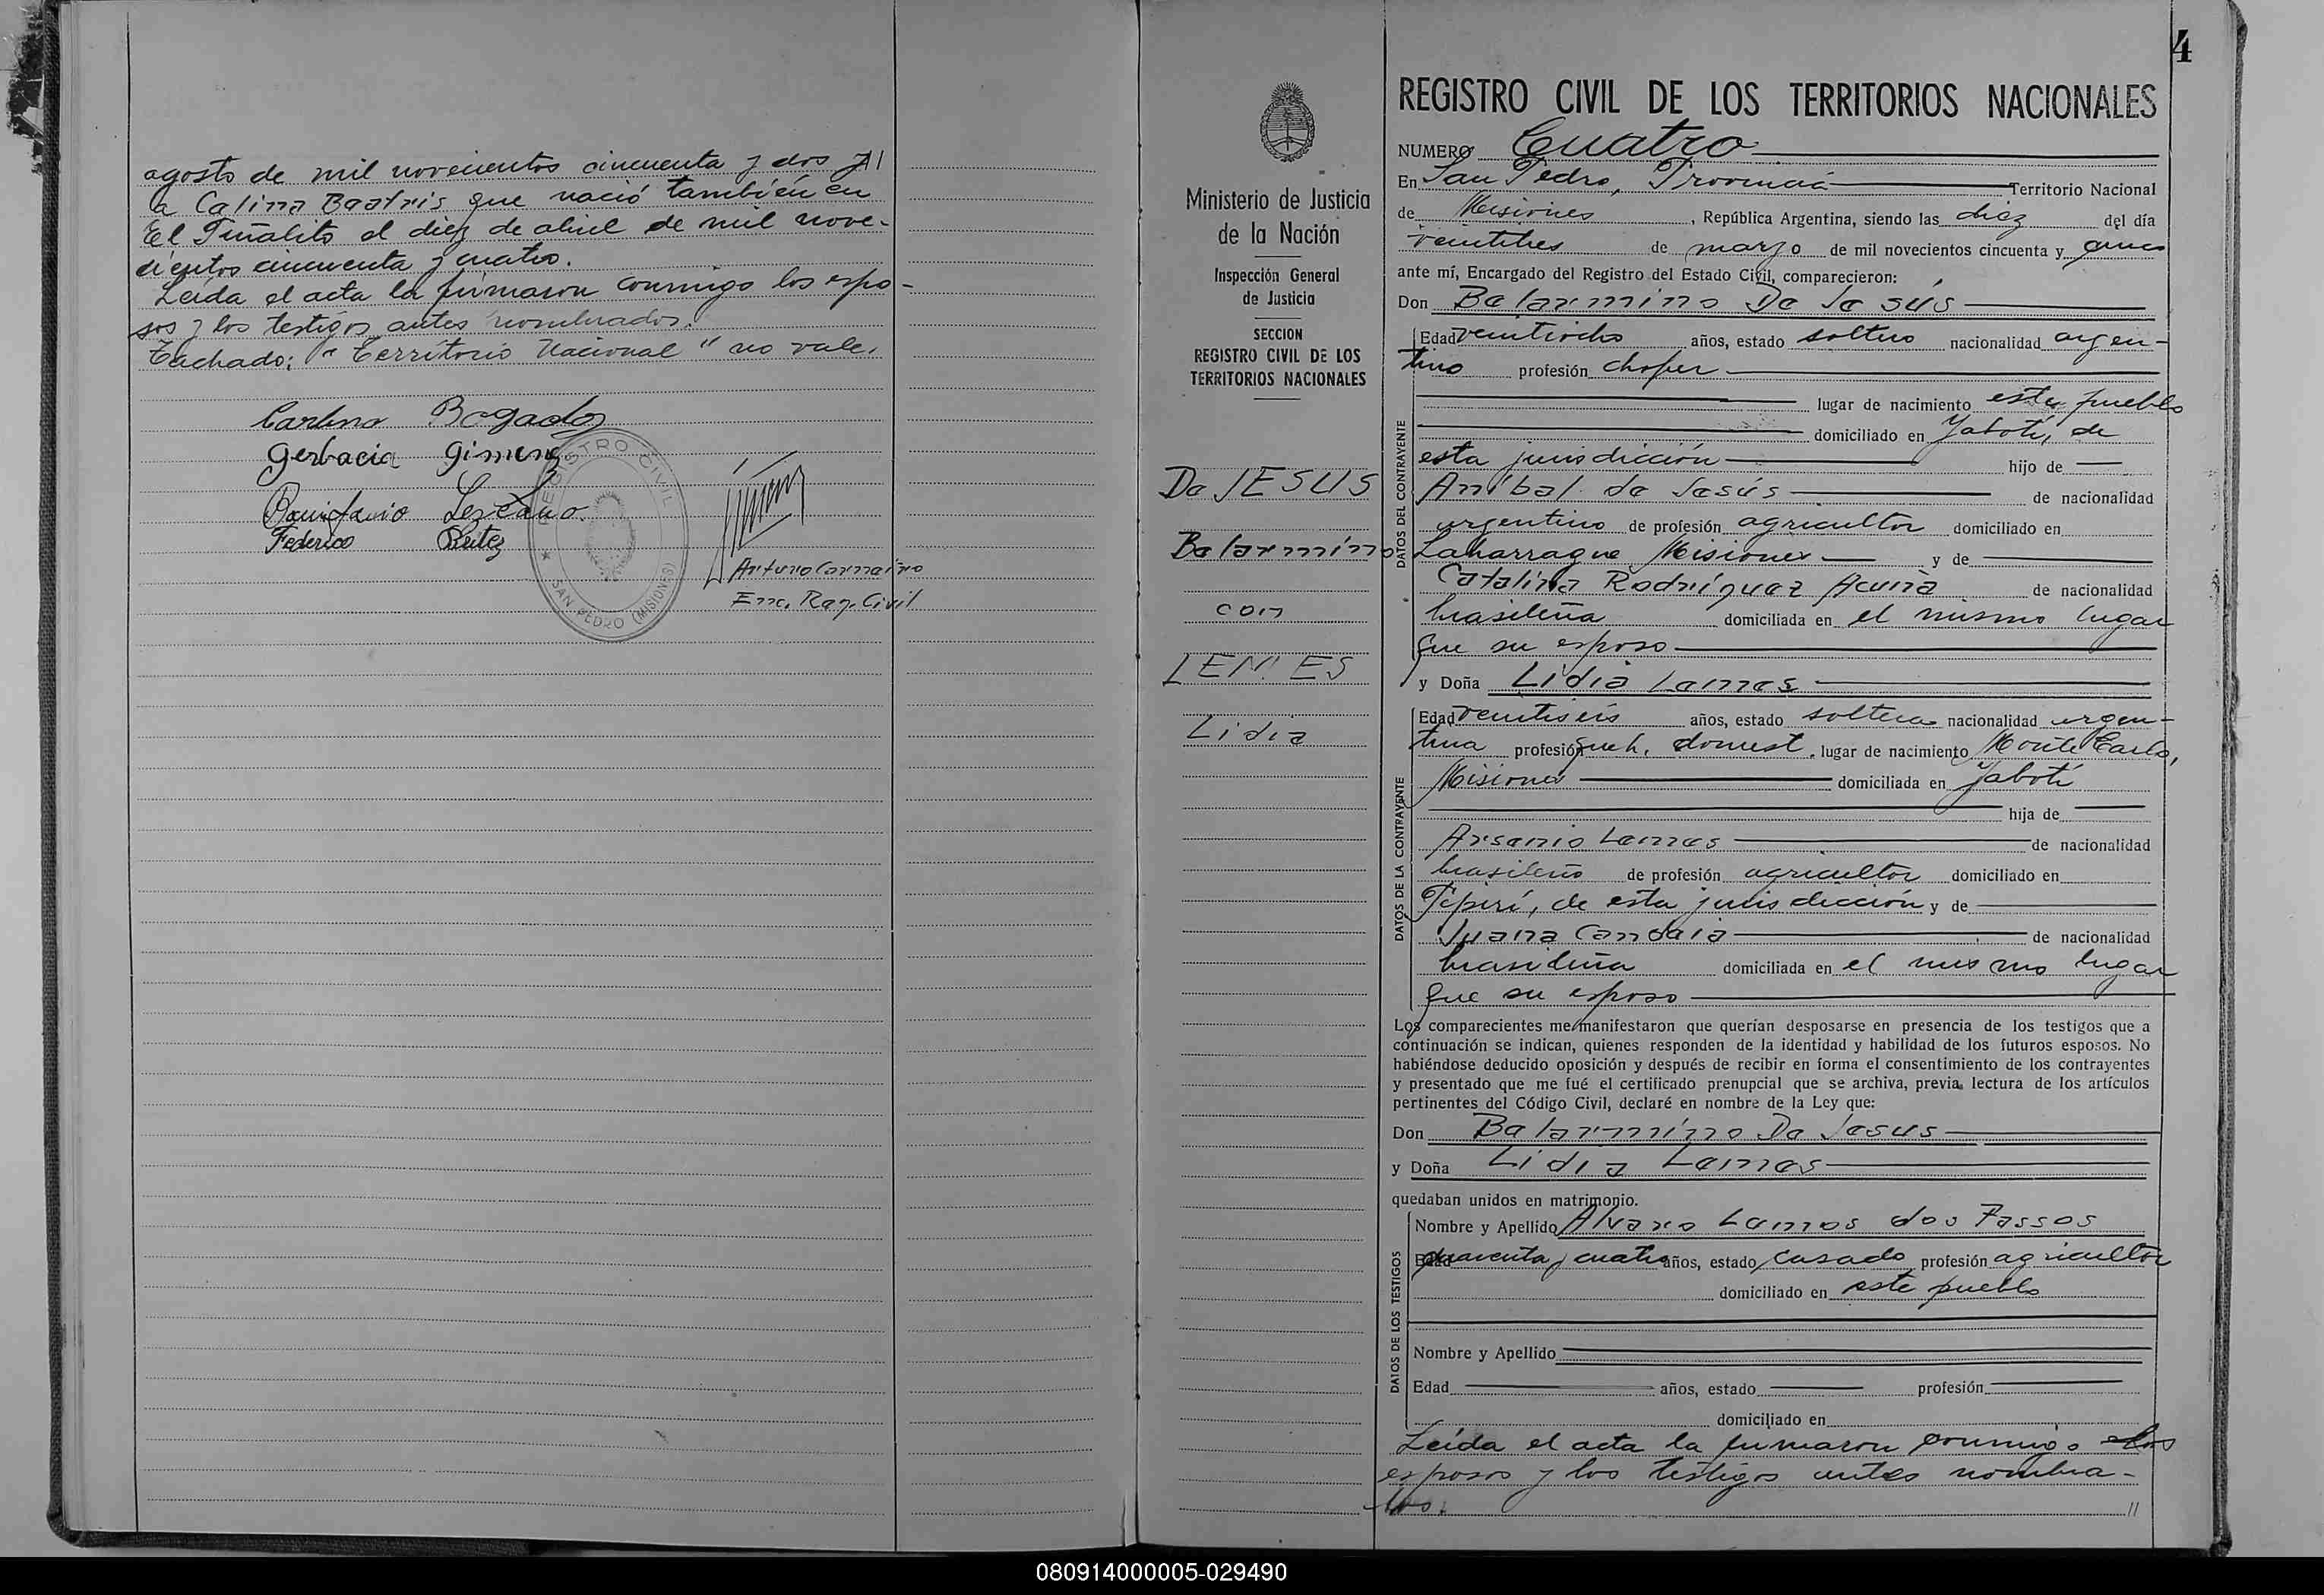 agosto de mil novecientos cincuenta y dos y
a Celina Beatris que nació también en
El Piñalito el diez de abril de mil nove-
cientos cincuenta y cuatro.
Leída el acta la firmaron conmigo los espo-
sos y los testigos antes nombrados.
Tachado: "Territorio Nacional" no vale.
Bogado
Gerbacia Gimenez
Bonifacio Lezcano
Federico Beitez
REGISTRO CIVIL
SAN PEDRO (MISIONES)
Enc. Reg. Civil
4
Ministerio de Justicia
de la Nación
Inspección General
de Justicia
SECCION
REGISTRO CIVIL DE LOS
TERRITORIOS NACIONALES
De JESUS
Belarmino
con
LEMES
Lidia
REGISTRO CIVIL DE LOS TERRITORIOS NACIONALES
NUMERO Cuatro
En San Pedro, Provincia Territorio Nacional
de Misiones, República Argentina, siendo las diez del día
veintitres de marzo de mil novecientos cincuenta y cinco
ante mí, Encargado del Registro del Estado Civil, comparecieron:
Don Belarmino De Jesús
DATOS DEL CONTRAYENTE
Edad veintiocho años, estado soltero nacionalidad argen-
tino profesión chofer
lugar de nacimiento este pueblo
domiciliado en Yabotí, de
esta jurisdicción hijo de
Aníbal de Jesús de nacionalidad
argentino de profesión agricultor domiciliado en
Laharrague Misiones y de
Catalina Rodríguez Acuña de nacionalidad
brasileña domiciliada en el mismo lugar
que su esposo
y Doña Lidia Lemes
DATOS DE LA CONTRAYENTE
Edad veintiseis años, estado soltera nacionalidad argen-
tina profesión queh. domest. lugar de nacimiento Monte Carlo,
Misiones domiciliada en Yabotí
hija de
Arsenio Lemes de nacionalidad
brasileño de profesión agricultor domiciliado en
Pepirí, de esta jurisdicción y de
Juana Candeia de nacionalidad
brasileña domiciliada en el mismo lugar
que su esposo
Los comparecientes me manifestaron que querían desposarse en presencia de los testigos que a
continuación se indican, quienes responden de la identidad y habilidad de los futuros esposos. No
habiéndose deducido oposición y después de recibir en forma el consentimiento de los contrayentes
y presentado que me fué el certificado prenupcial que se archiva, previa lectura de los artículos
pertinentes del Código Civil, declaré en nombre de la Ley que:
Don Belarmino De Jesus
y Doña Lidia Lemes
quedaban unidos en matrimonio.
DATOS DE LOS TESTIGOS
Nombre y Apellido Alvaro Lemos dos Passos
Edad cuarenta y cuatro años, estado casado profesión agricultor
domiciliado en este pueblo
Nombre y Apellido
Edad años, estado profesión
domiciliado en
Leída el acta la firmaron conmigo los
esposos y los testigos antes nombra-
dos.
//
080914000005-029490